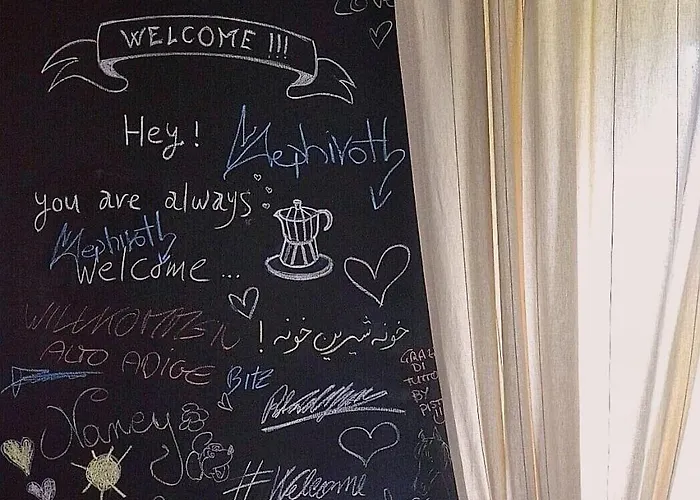 LOVE
WELCOME !!!
Hey!
Mephiroth
you are always
Mephiroth
Welcome ...
WILLKOMMEN
خونه شیرین خونه !
ALTO ADIGE
BITE
GRAZIE
DI
TUTTO
BY
Nancy
#Welcome